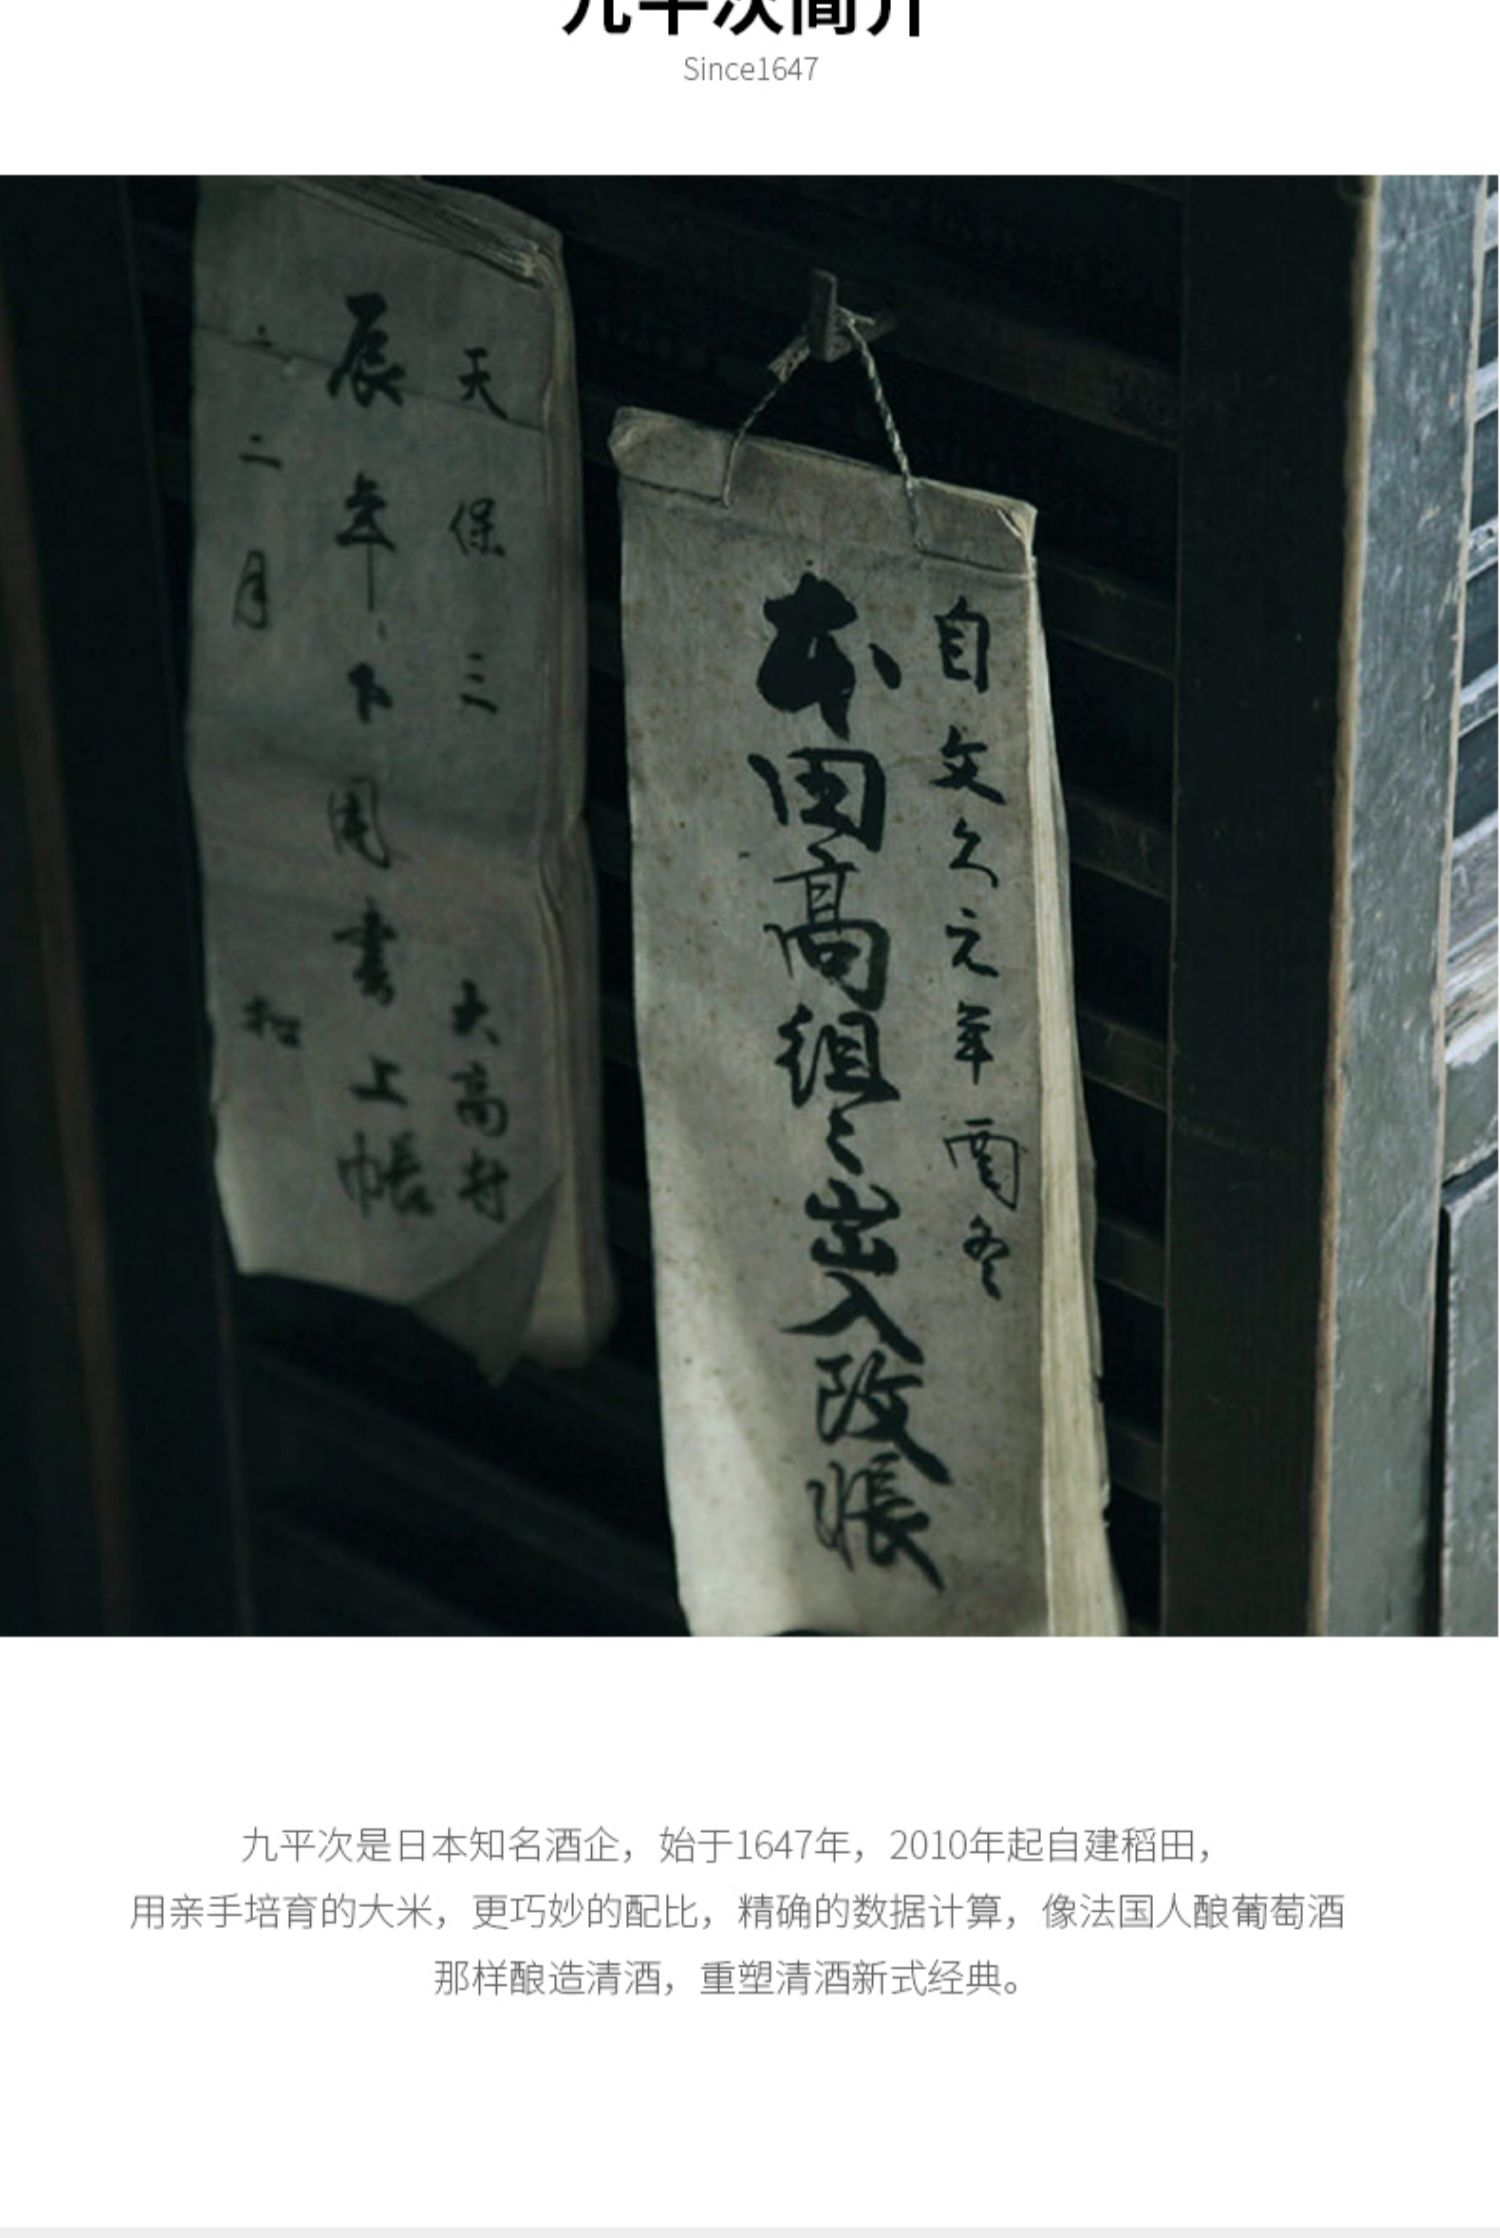 九平次简介
Since1647
自文久元年酉冬
本田高組之出入改帳
天保三 大高村
辰年
書上帳
二月 扣
九平次是日本知名酒企，始于1647年，2010年起自建稻田，
用亲手培育的大米，更巧妙的配比，精确的数据计算，像法国人酿葡萄酒
那样酿造清酒，重塑清酒新式经典。